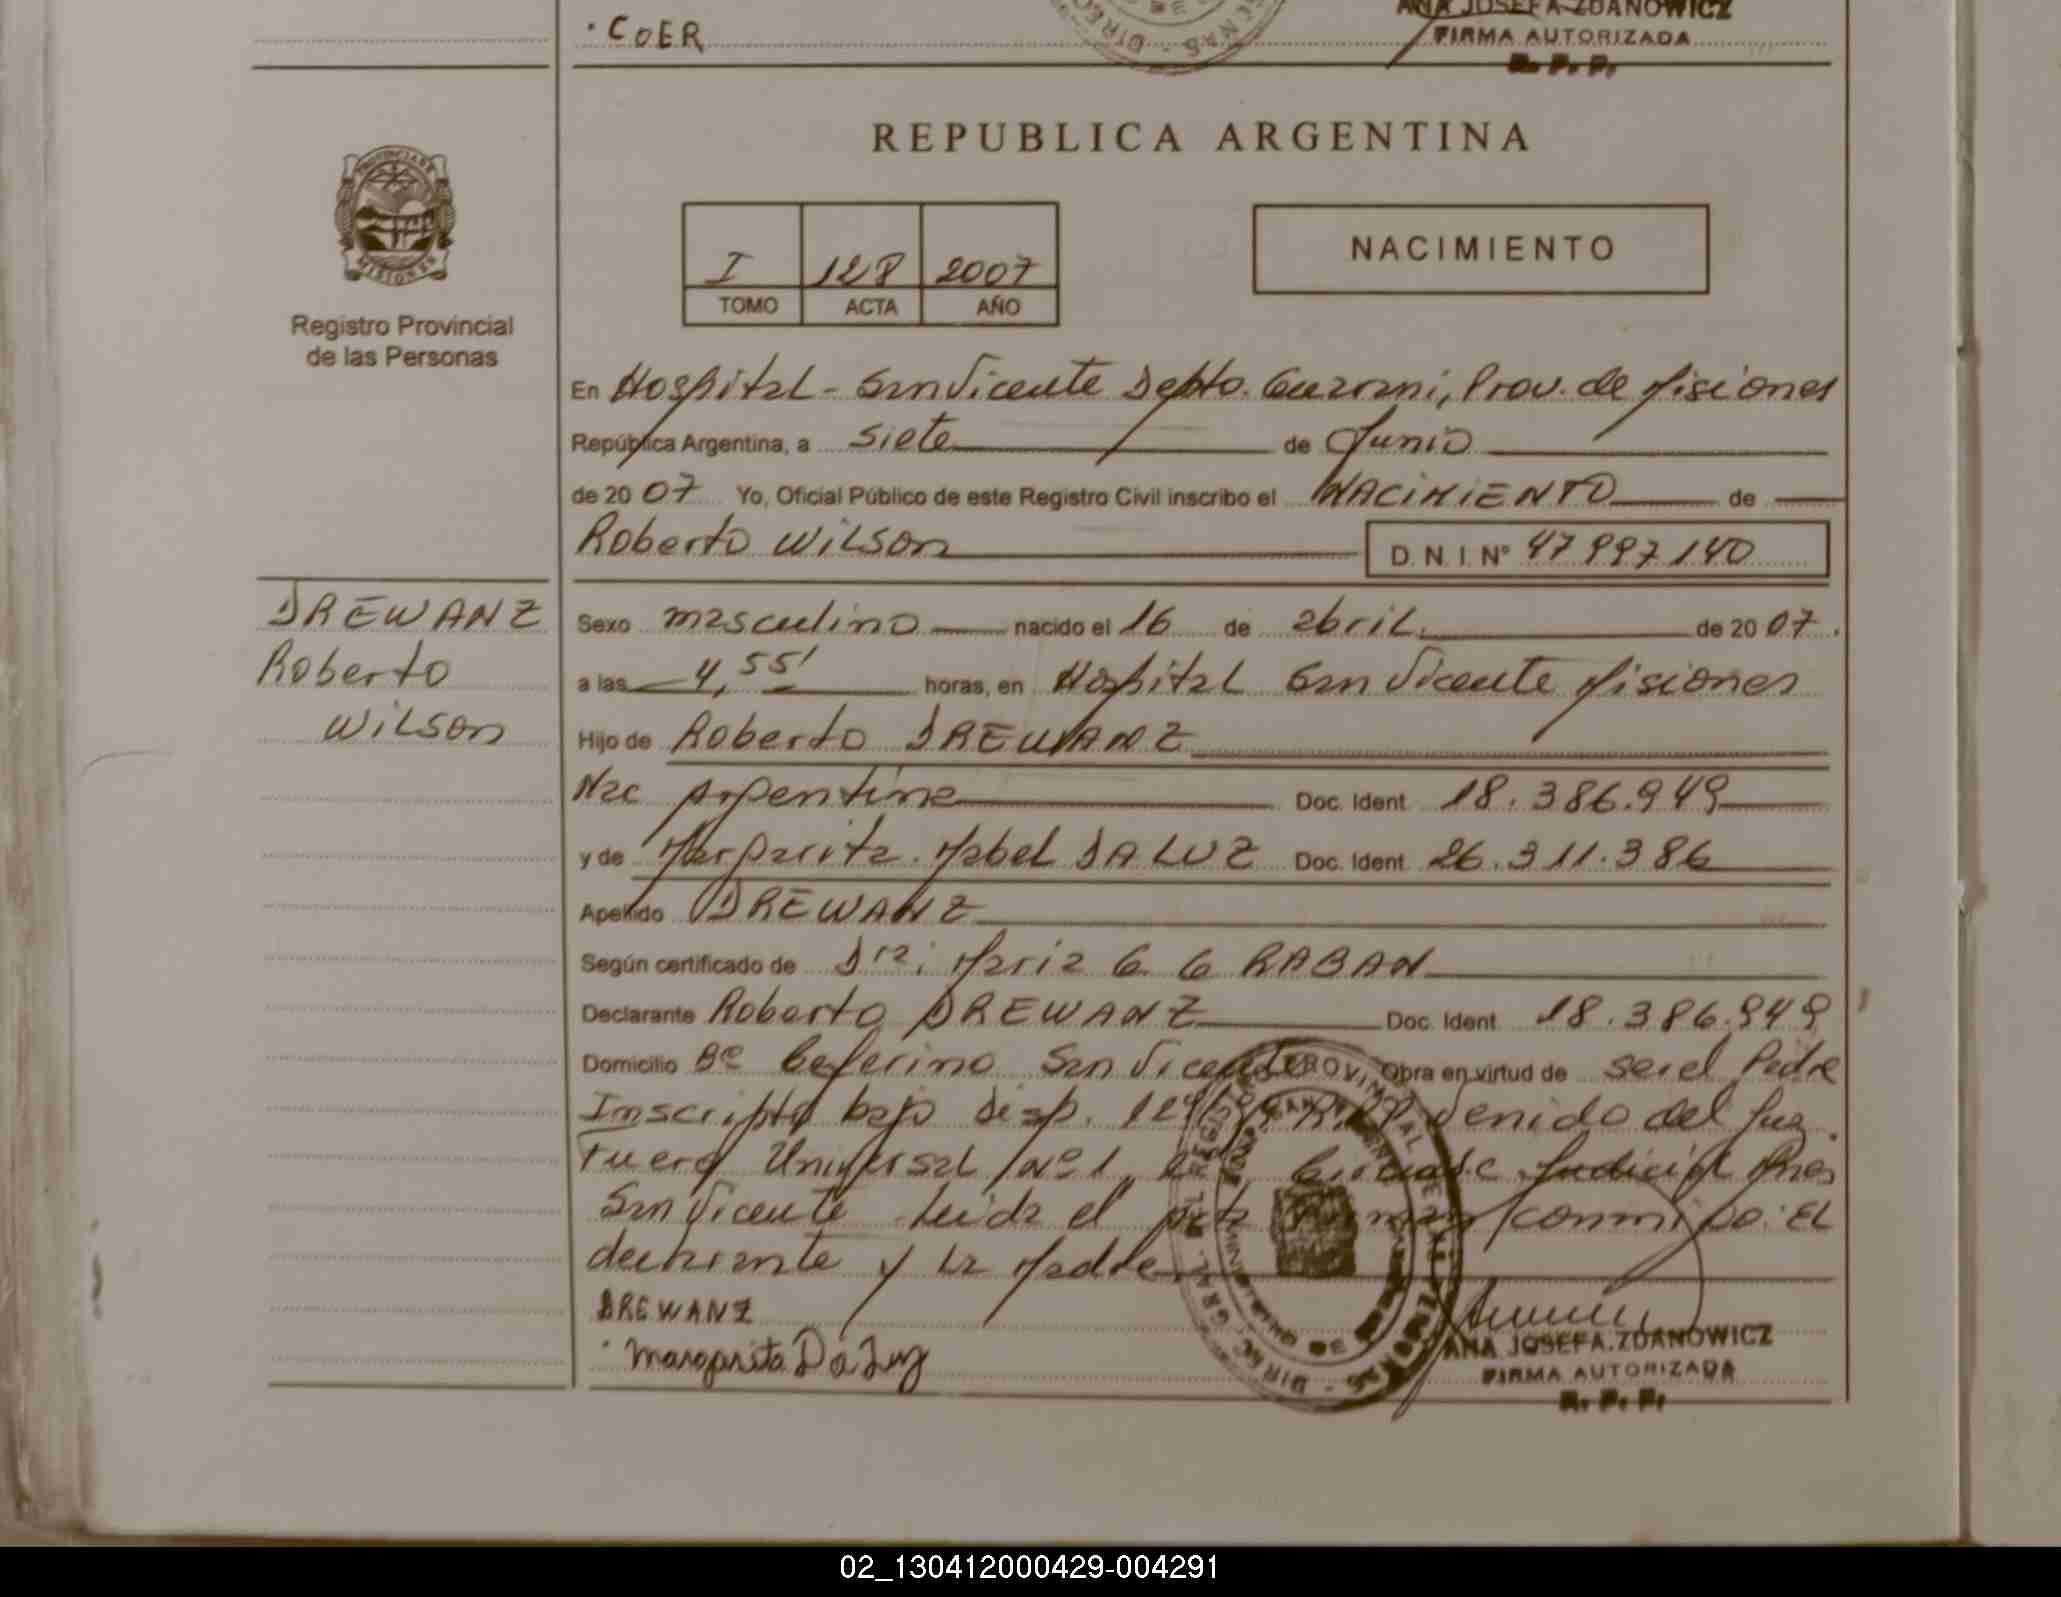 · COER
ANA JOSEFA ZDANOWICZ
FIRMA AUTORIZADA
R. P. P.
REPUBLICA ARGENTINA
I 128 2007
TOMO ACTA AÑO
NACIMIENTO
PROVINCIA DE
MISIONES
Registro Provincial
de las Personas
En Hospital - San Vicente Depto. Guarani, Prov. de Misiones
República Argentina, a siete de Junio
de 2007 Yo, Oficial Público de este Registro Civil inscribo el NACIMIENTO de
Roberto Wilson D. N. I. N° 47997140
DREWANZ
Roberto
Wilson
Sexo masculino nacido el 16 de abril de 2007.
a las 4,55' horas, en Hospital San Vicente Misiones
Hijo de Roberto DREWANZ
Nac Argentina Doc. Ident 18.386.949
y de Margarita Mabel DA LUZ Doc. Ident. 26.311.386
Apellido DREWANZ
Según certificado de Dra: Maria G. G RABAN
Declarante Roberto DREWANZ Doc. Ident 18.386.949
Domicilio Bº Ceferino San Vicente Obra en virtud de ser el Padre
Inscripto bajo Disp. venido del Juz.
Fuero Universal Nº1 Judicial
San Vicente Leida el acta conmigo: EL
declarante y la Madre
DREWANZ
· Margarita Da Luz
ANA JOSEFA ZDANOWICZ
FIRMA AUTORIZADA
R. P. P.
02_130412000429-004291